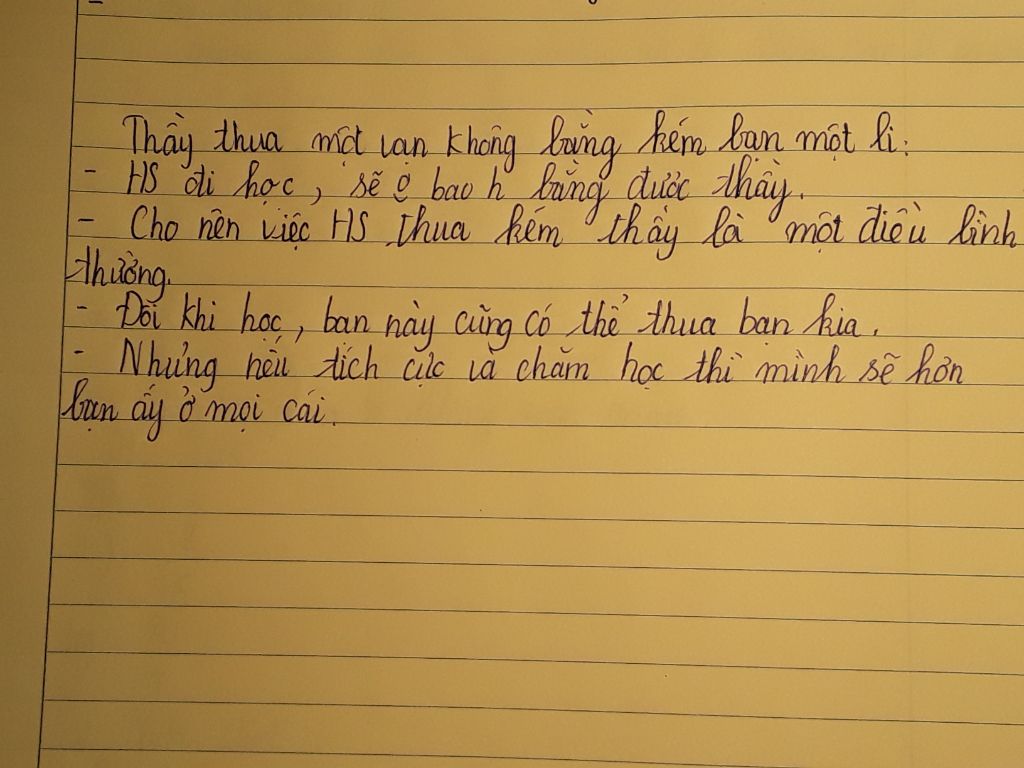 Thầy thua một vạn không bằng kém bạn một li:
- HS đi học, sẽ o bao h bằng được thầy.
- Cho nên việc HS thua kém thầy là một điều bình
thường.
- Đôi khi học, bạn này cũng có thể thua bạn kia.
- Nhưng nếu tích cực và chăm học thì mình sẽ hơn
bạn ấy ở mọi cái.